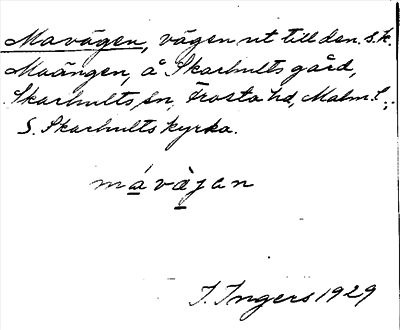 Mavägen, vägen ut till den s.k.
Maängen, å Skarhults gård,
Skarhults sn, Frosta hd, Malm. l.;
S. Skarhults kyrka.
mávàjan
I. Ingers 1929